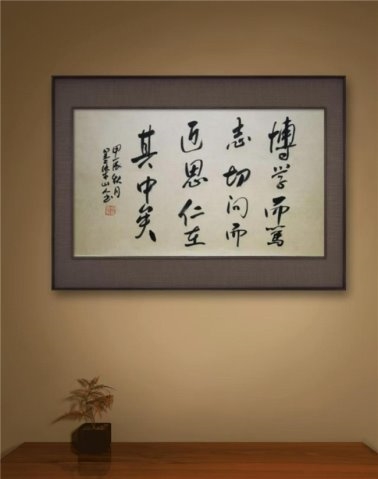 博学而篤
志切问而
近思仁在
其中矣
甲辰秋月
山人书